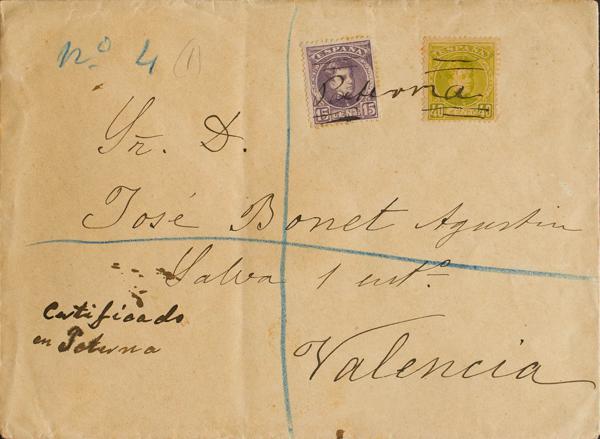 nº 4 (1)
ESPAÑA
15 CENT 15
ESPAÑA
Paterna
Sr. D.
José Bonet Agustin
Salva 1 entº
Certificado
en Paterna
Valencia